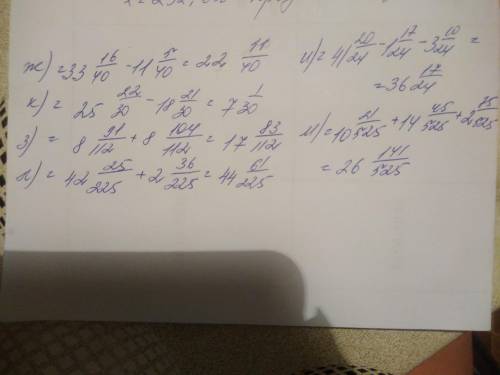 ж) = 33 16/40 - 11 5/40 = 22 11/40
к) = 25 22/30 - 18 21/30 = 7 1/30
з) = 8 91/112 + 8 104/112 = 17 83/112
л) = 42 25/225 + 2 36/225 = 44 61/225
и) = 41 20/24 - 1 17/24 - 3 10/24 =
= 36 17/24
м) = 10 21/525 + 14 45/525 + 2 75/525
= 26 141/525